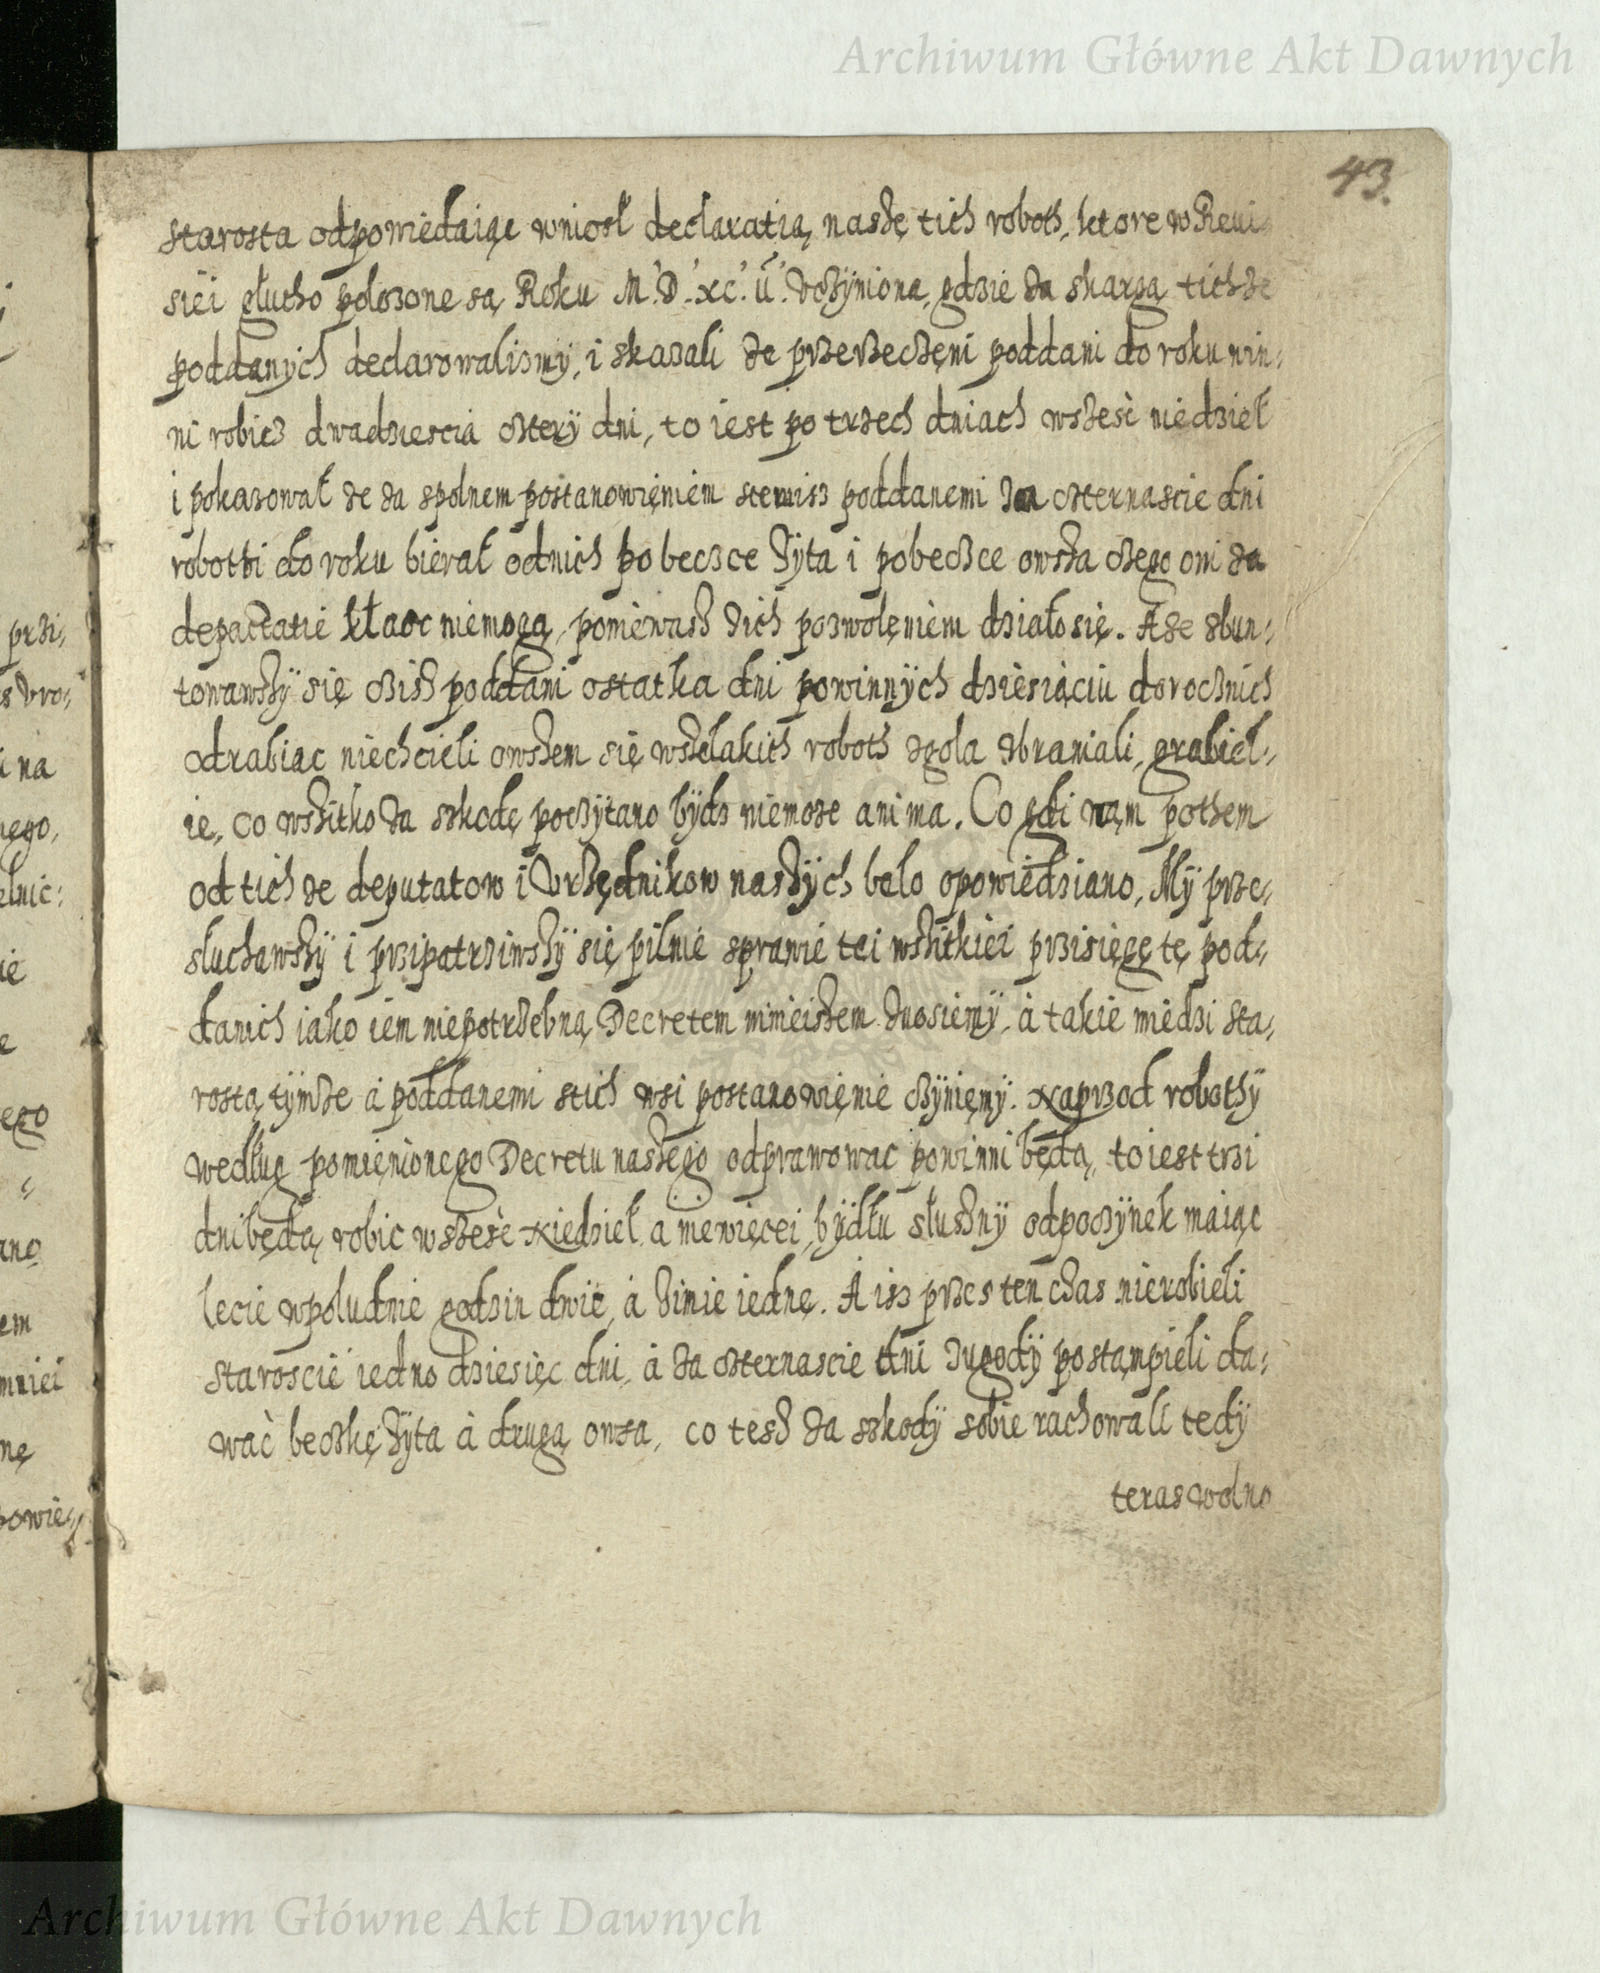 Archiwum Główne Akt Dawnych
43.
starosta odpowiedaiąc wniosł declaratią naszę tich roboth, ktore w Revi
siei głucho polozone są Roku M.D.xc.ii. vczÿniona, gdzie za skargą tichze
poddanych declarowalismÿ, i skazali ze przerzeczęni poddani do roku win:
ni robicz dwadziescia czterÿ dni, to iest po trzech dniach wszesc niedziel
i pokazował ze za spolnem postanowięniem stemisz poddanemi za czternascie dni
robothi do roku bierał odnich po beczce zÿta i pobeczce owsza czego oni za
depactatie kłaoc niemogą, poniewasz zich pozwolęniem działo się. A ze zbun:
towawszÿ się czisz poddani ostatka dni powinnÿch dziesiąciu dorocznich
odrabiac niechcieli owszem się wszelakich roboth zgola zbraniali, grabiel:
ie, co wszitko za szkodę poczÿtano bÿdz niemoze ani ma. Co gdi nąm pothem
od tich ze deputatow i Vrzędnikow naszÿch beło opowiedziano, Mÿ prze:
słuchawszÿ i przipatrziwszÿ się pilnie sprawie tei wszitkiei przisięgę tę pod:
danich iako iem niepotrzebną Decretem ninieiszem znosiemÿ, à takie miedzi sta:
rostą tÿmze à poddanemi stich wsi postanowięnie czÿnięmÿ. Naprzod robothÿ
według pomięnionego Decretu naszego odprawowac powinni będą, to iest trzi
dni będą robic w szesc Niedziel a niewięcei, bÿdłu słusznÿ odpoczÿnek maiąc
lecie wpoludnie godzin dwie, à zimie iednę. A isz przes ten czas nierobieli
staroscie iedno dziesięc dni, à za czternascie dni zugodÿ postąmpieli da:
wać beczkę zÿta à drugą owsa, co tesz za szkodÿ sobie rachowali tedÿ
teras wolno
Archiwum Główne Akt Dawnych